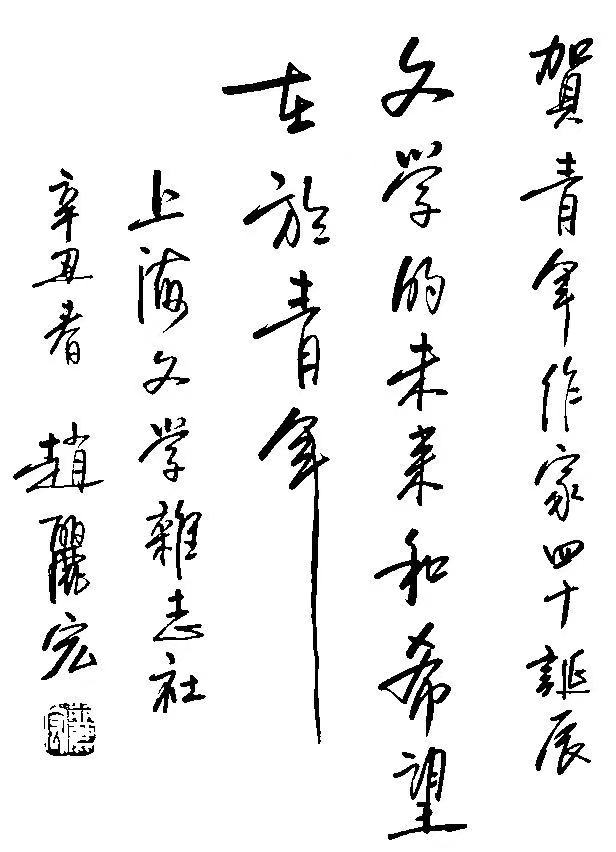 賀青年作家四十誕辰
文学的未来和希望
在於青年
上海文学雜志社
辛丑春 趙麗宏